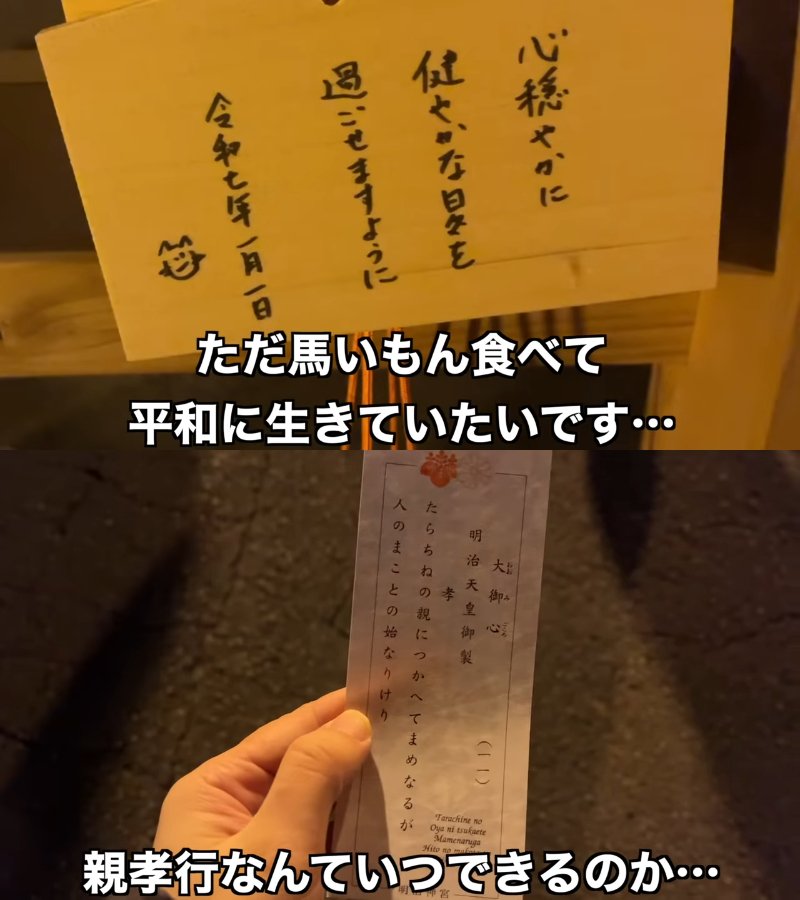 心穏やかに
健やかな日々を
過ごせますように
令和七年一月一日
ただ馬いもん食べて
平和に生きていたいです…
大御心
おおみごころ
明治天皇御製
(一一)
孝
たらちねの親につかへてまめなるが
人のまことの始なりけり
Tarachine no
Oya ni tsukaete
Mamenaruga
Hito no
明治神宮
親孝行なんていつできるのか…